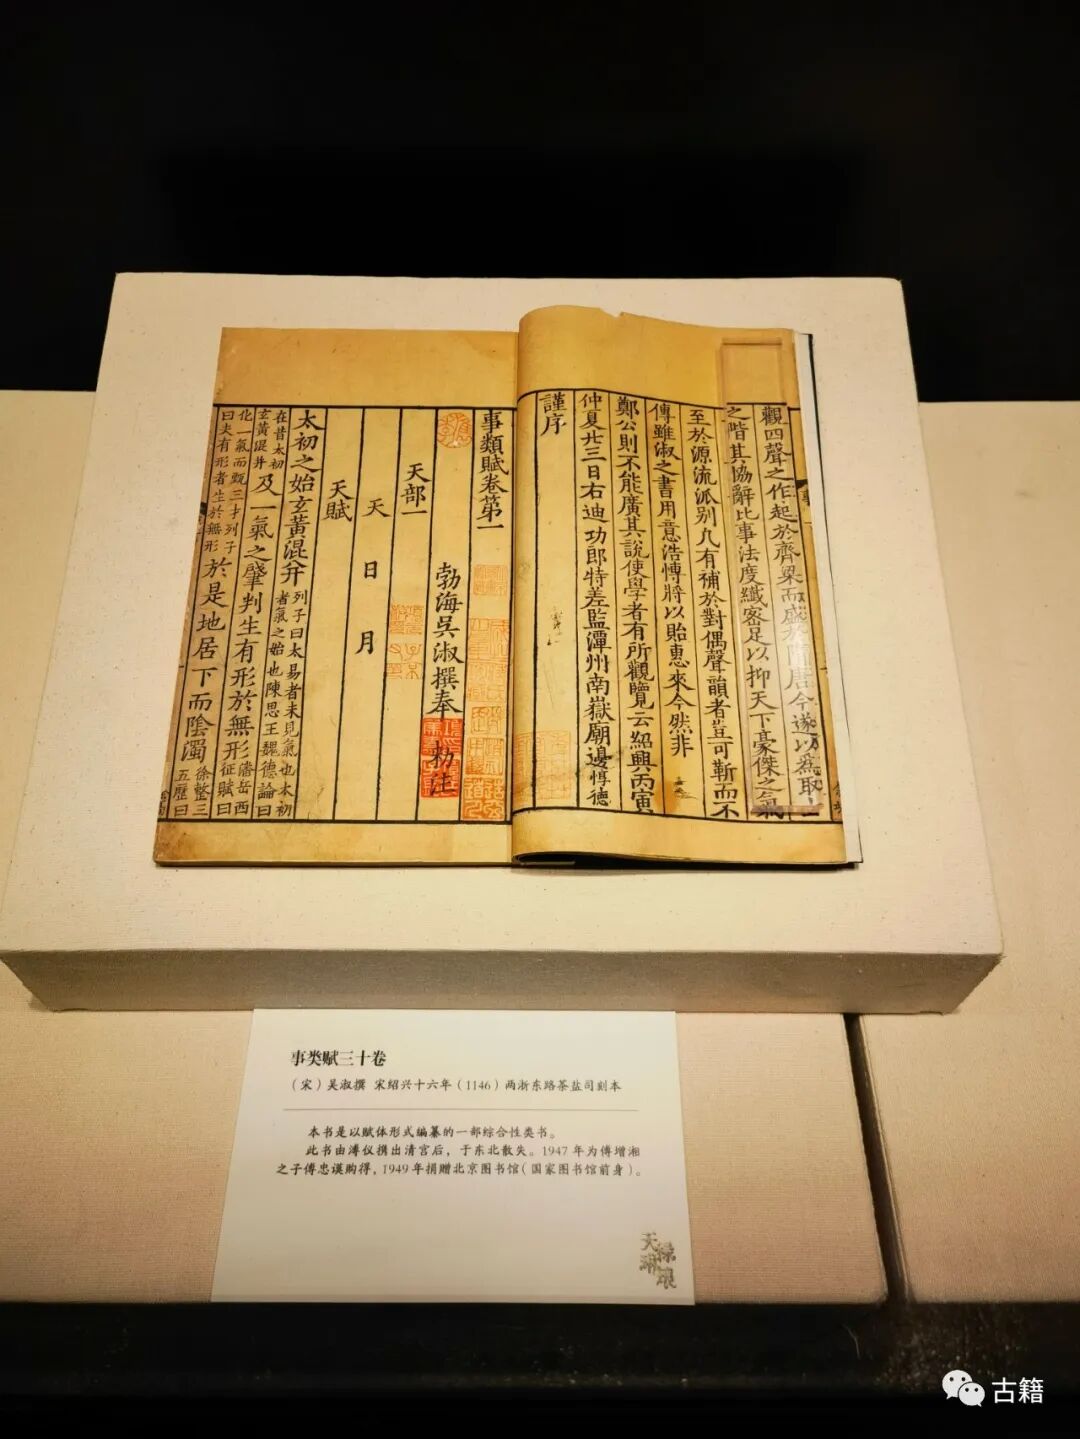 觀四聲之作起於齊梁而盛於隋唐今遂以爲取士
之階其協辭比事法度纖密足以抑天下豪傑之氣
至於源流派别凡有補於對偶聲韻者豈可靳而不
傳雖淑之書用意浩博將以貽惠來今然非
鄭公則不能廣其說使學者有所觀覽云紹興丙寅
仲夏廿三日右迪功郎特差監潭州南嶽廟邊惇德
謹序
事類賦卷第一
勃海吳淑撰奉 勑注
天部一
天 日 月
天賦
太初之始玄黃混并列子曰太易者未見氣也太初
者氣之始也陳思王魏德論曰
在昔太初
玄黃混并及一氣之肇判生有形於無形潘岳西
征賦曰
化一氣而甄三才列子
曰夫有形者生於無形於是地居下而陰濁徐整三
五歷曰
事类赋三十卷
（宋）吴淑撰 宋绍兴十六年（1146）两浙东路茶盐司刻本
本书是以赋体形式编纂的一部综合性类书。
此书由溥仪携出清宫后，于东北散失。1947年为傅增湘
之子傅忠谟购得，1949年捐赠北京图书馆（国家图书馆前身）。
天禄
琳琅
古籍